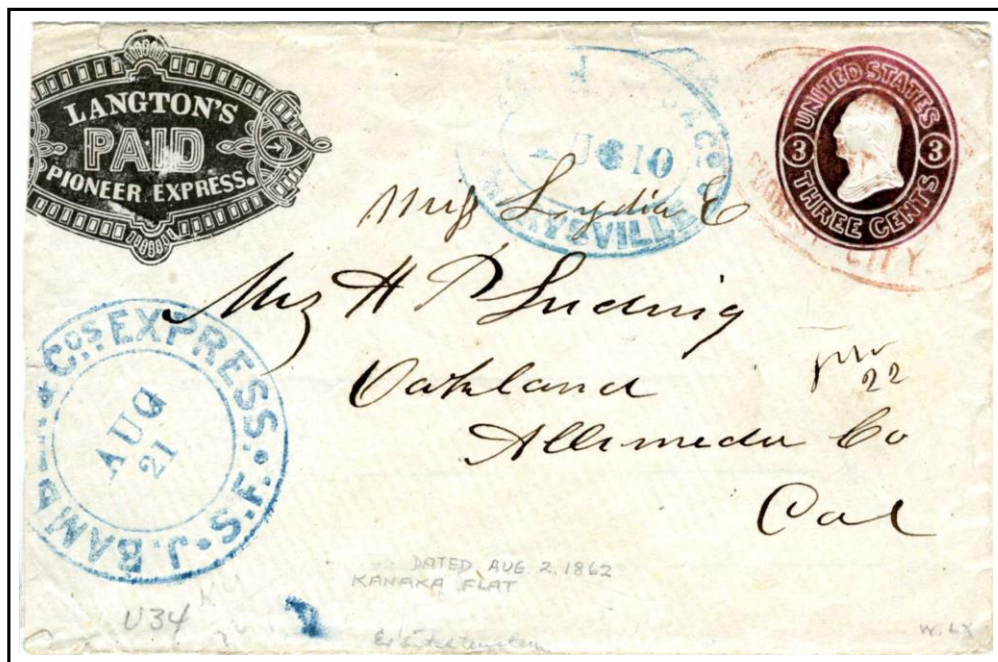 LANGTON'S
PAID
PIONEER EXPRESS.
10
MARYSVILLE
UNITED STATES
3 3
THREE CENTS
CITY
Miss Lydia E
Mrs H P Ludwig
Oakland
Allameda Co
Cal
22
J. BAM & COS. EXPRESS. S.F.
AUG
21
DATED AUG 2, 1862
KANAKA FLAT
U34
W. LX